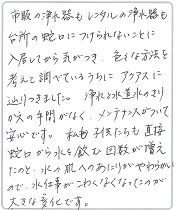 市販の浄水器もレンタルの浄水器も
台所の蛇口につけられないことに
入居してから気がつき、色々な方法を
考えて調べているうちに アクアスに
辿りつきました。 浄水と水道水のきり
かえの手間がなく、メンテナンスがついて
安心です。 私も子供たちも直接
蛇口から水を飲む回数が増え
たのと、水の肌へのあたりがやわらかい
ので、水仕事がこわくなくなったのが
大きな変化です。